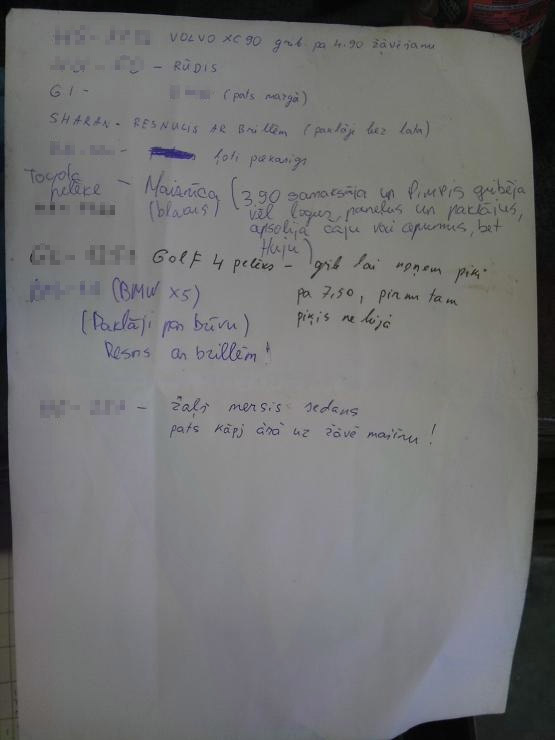 VOLVO XC90 grib. pa 4.90 žāvējamu
- RŪDIS
GI - (pats mazgā)
SHARAN - RESNULIS AR BRILLĒM (paklāji bez lata)
ļoti piekasīgs
Toyota pelēkā - Maisnīca (3,90 samaksāja un Pimpis gribēja
(blakus) vēl logus, paneļus un paklājus,
apsolīja čaju vai apmums, bet
Huju)
GOLF 4 pelēks - grib lai noņem piķi
(BMW X5) pa 7,50, pirms tam
(Paklāji par brīvu) piķis nebijā
Resns ar brillēm!
- zaļš mersis sedans
pats kāpj ārā uz žāvē mašīnu!